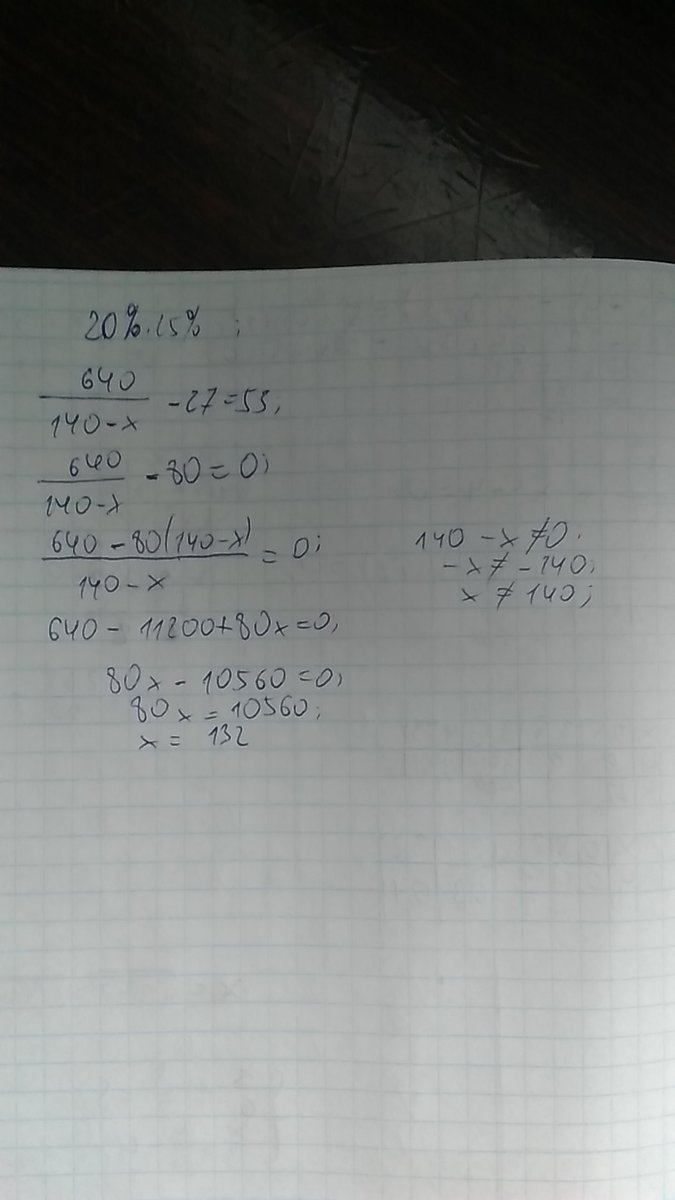 20%·15% ;
640/(140-x) -27=53,
640/(140-x) -80=0;
(640-80(140-x))/(140-x) =0;
140-x≠0.
-x≠-140;
x≠140;
640-11200+80x=0,
80x-10560=0;
80x=10560;
x= 132